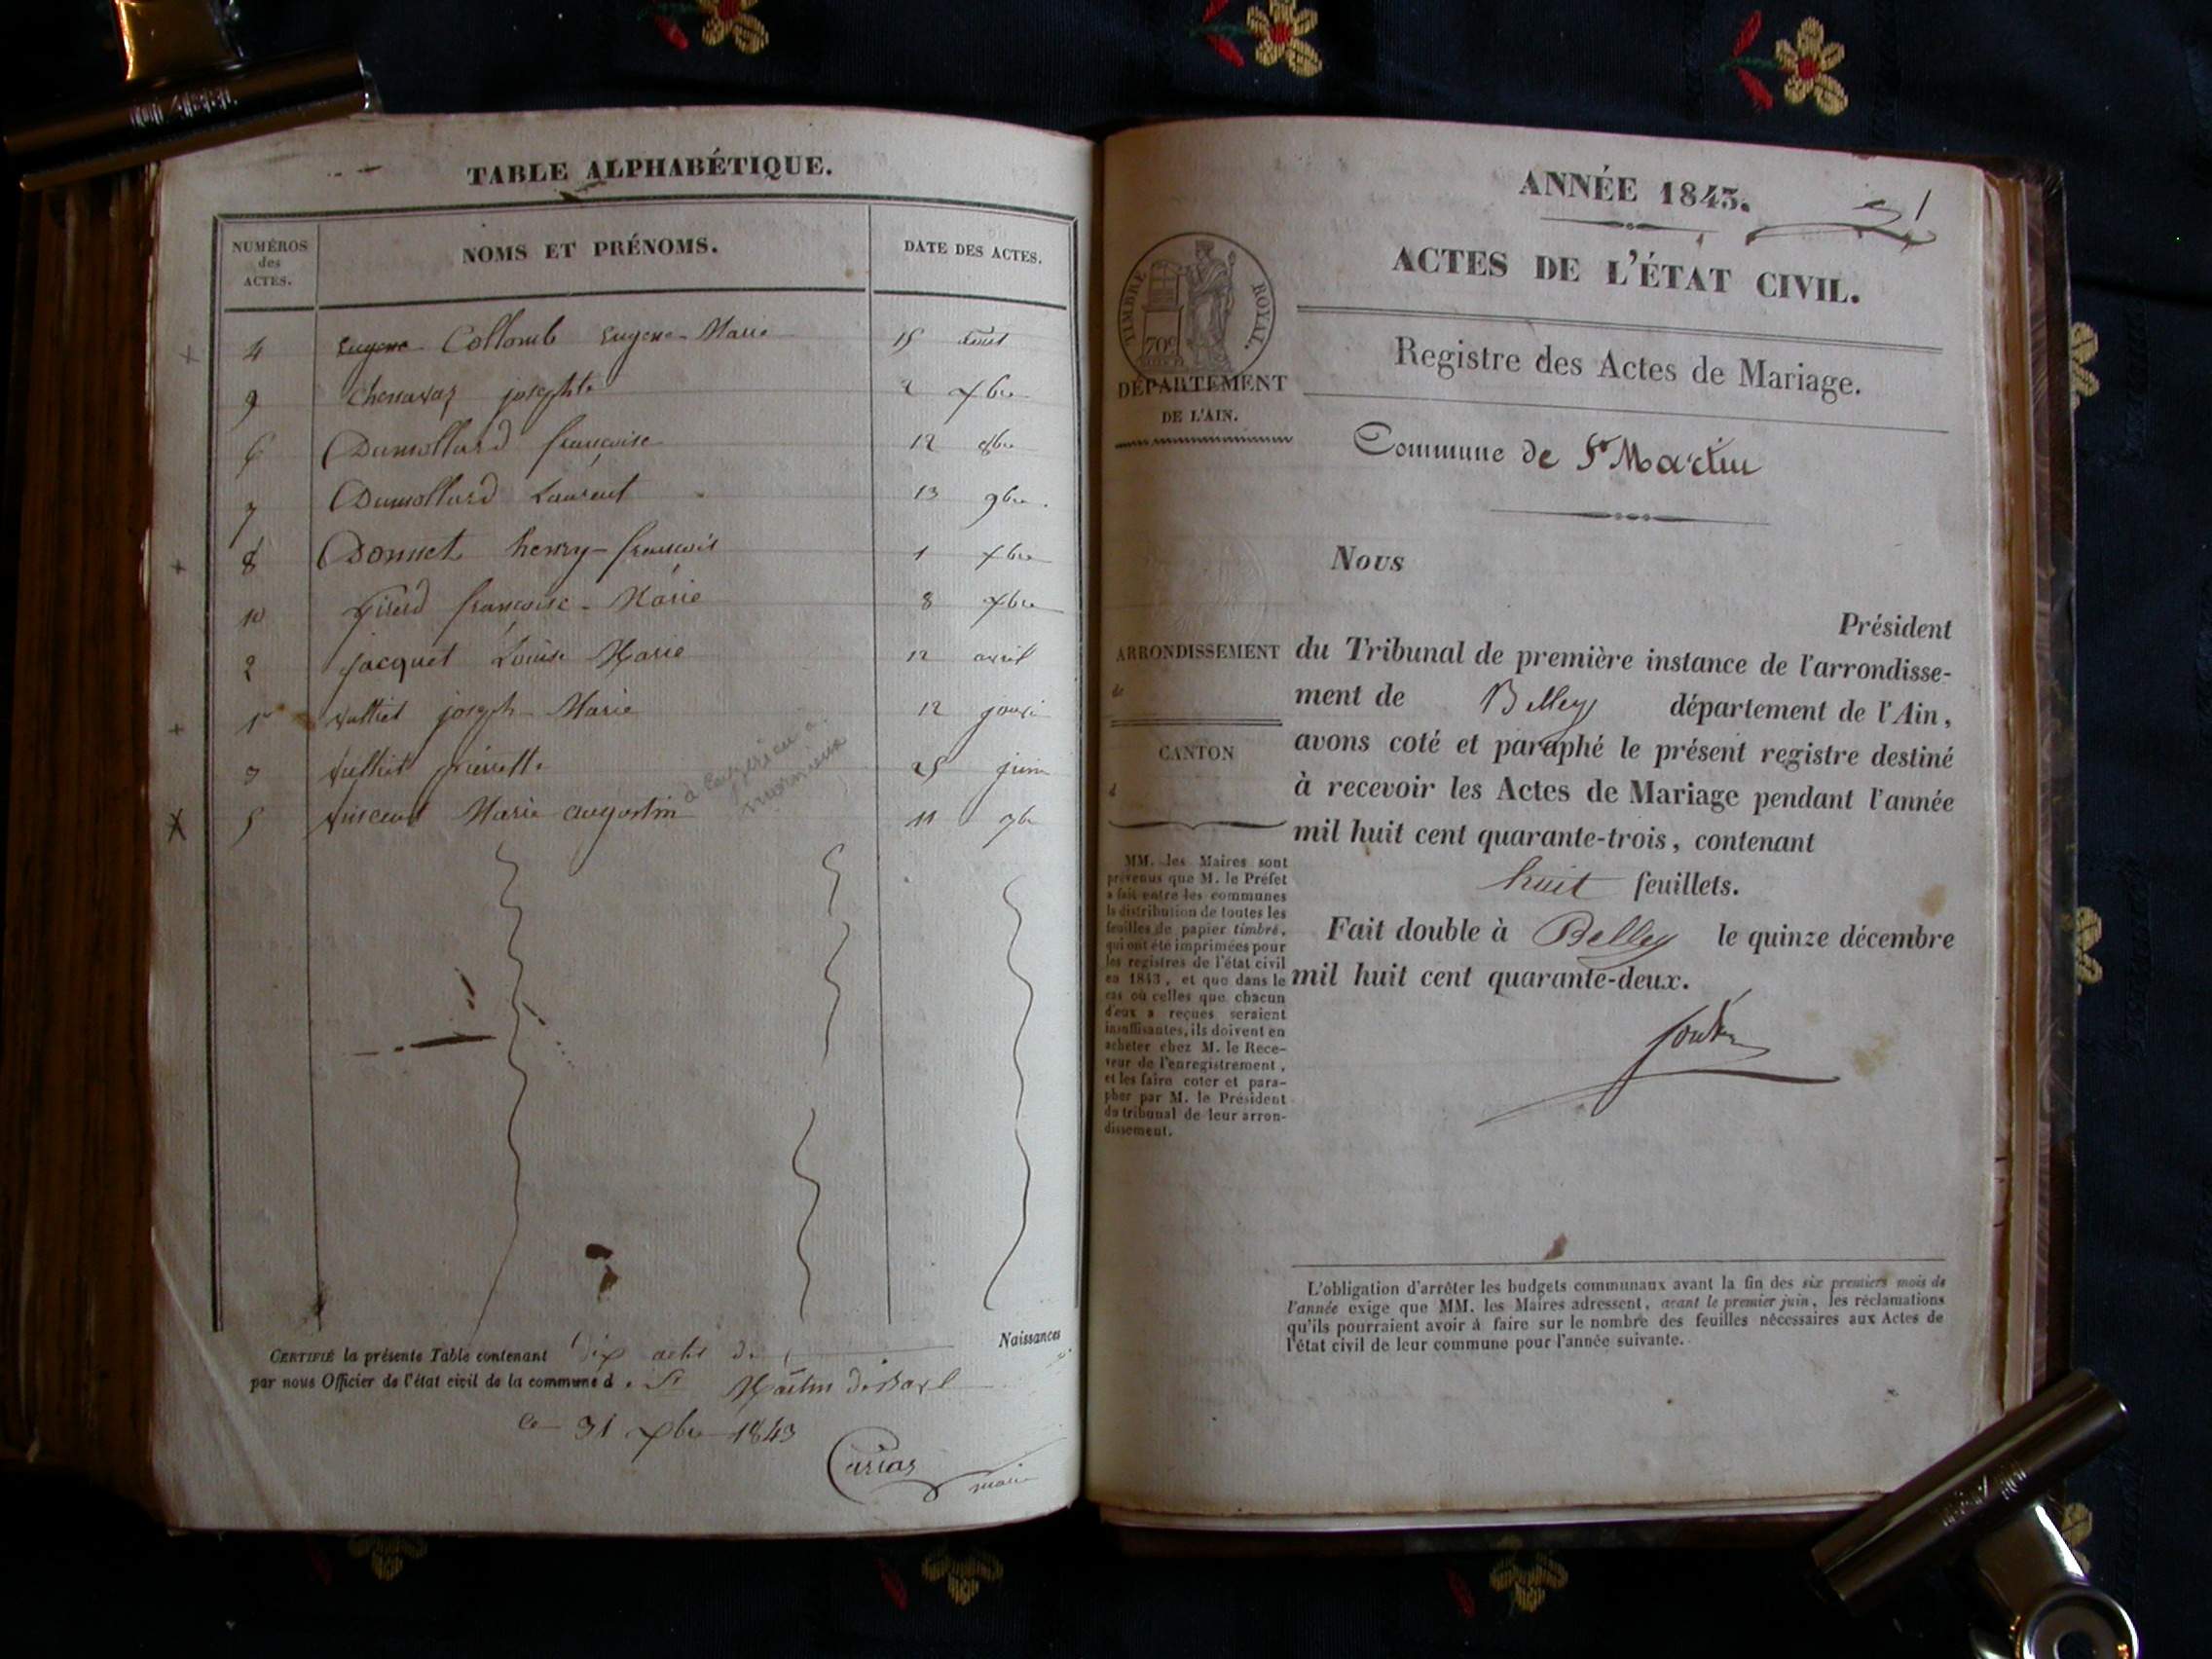 TABLE ALPHABÉTIQUE.
NUMÉROS
des
ACTES.
NOMS ET PRÉNOMS.
DATE DES ACTES.
4 Eugene Collomb Eugene-Marie 15 aout
9 Chenavaz josephte 2 xbre
6 Dumollard françoise 12 8bre
7 Dumollard Laurent 13 9bre.
8 Donnet henry-francois 1 xbre
10 françoise-Marie 8 xbre
2 jacquet Louise Marie 12 avril
1er joseph-Marie 12
3 25 juin
5 Vincent Marie augustin 11 7bre
Naissances
CERTIFIÉ la présente Table contenant dix actes de
par nous Officier de l'état civil de la commune d. St Martin de Bavel
ce 31 xbre 1843
maire
ANNÉE 1843.
1
ACTES DE L'ÉTAT CIVIL.
TIMBRE ROYAL.
70c
Registre des Actes de Mariage.
DÉPARTEMENT
DE L'AIN.
Commune de St Martin
Nous
Président
ARRONDISSEMENT
de
CANTON
d
du Tribunal de première instance de l'arrondisse-
ment de Belley département de l'Ain,
avons coté et paraphé le présent registre destiné
à recevoir les Actes de Mariage pendant l'année
mil huit cent quarante-trois, contenant
huit feuillets.
Fait double à Belley le quinze décembre
mil huit cent quarante-deux.
MM. les Maires sont
prévenus que M. le Préfet
a fait entre les communes
la distribution de toutes les
feuilles de papier timbré,
qui ont été imprimées pour
les registres de l'état civil
en 1843, et que dans le
cas où celles que chacun
d'eux a reçues seraient
insuffisantes, ils doivent en
acheter chez M. le Rece-
veur de l'enregistrement,
et les faire coter et para-
pher par M. le Président
du tribunal de leur arron-
dissement.
L'obligation d'arrêter les budgets communaux avant la fin des six premiers mois de
l'année exige que MM. les Maires adressent, avant le premier juin, les réclamations
qu'ils pourraient avoir à faire sur le nombre des feuilles nécessaires aux Actes de
l'état civil de leur commune pour l'année suivante.